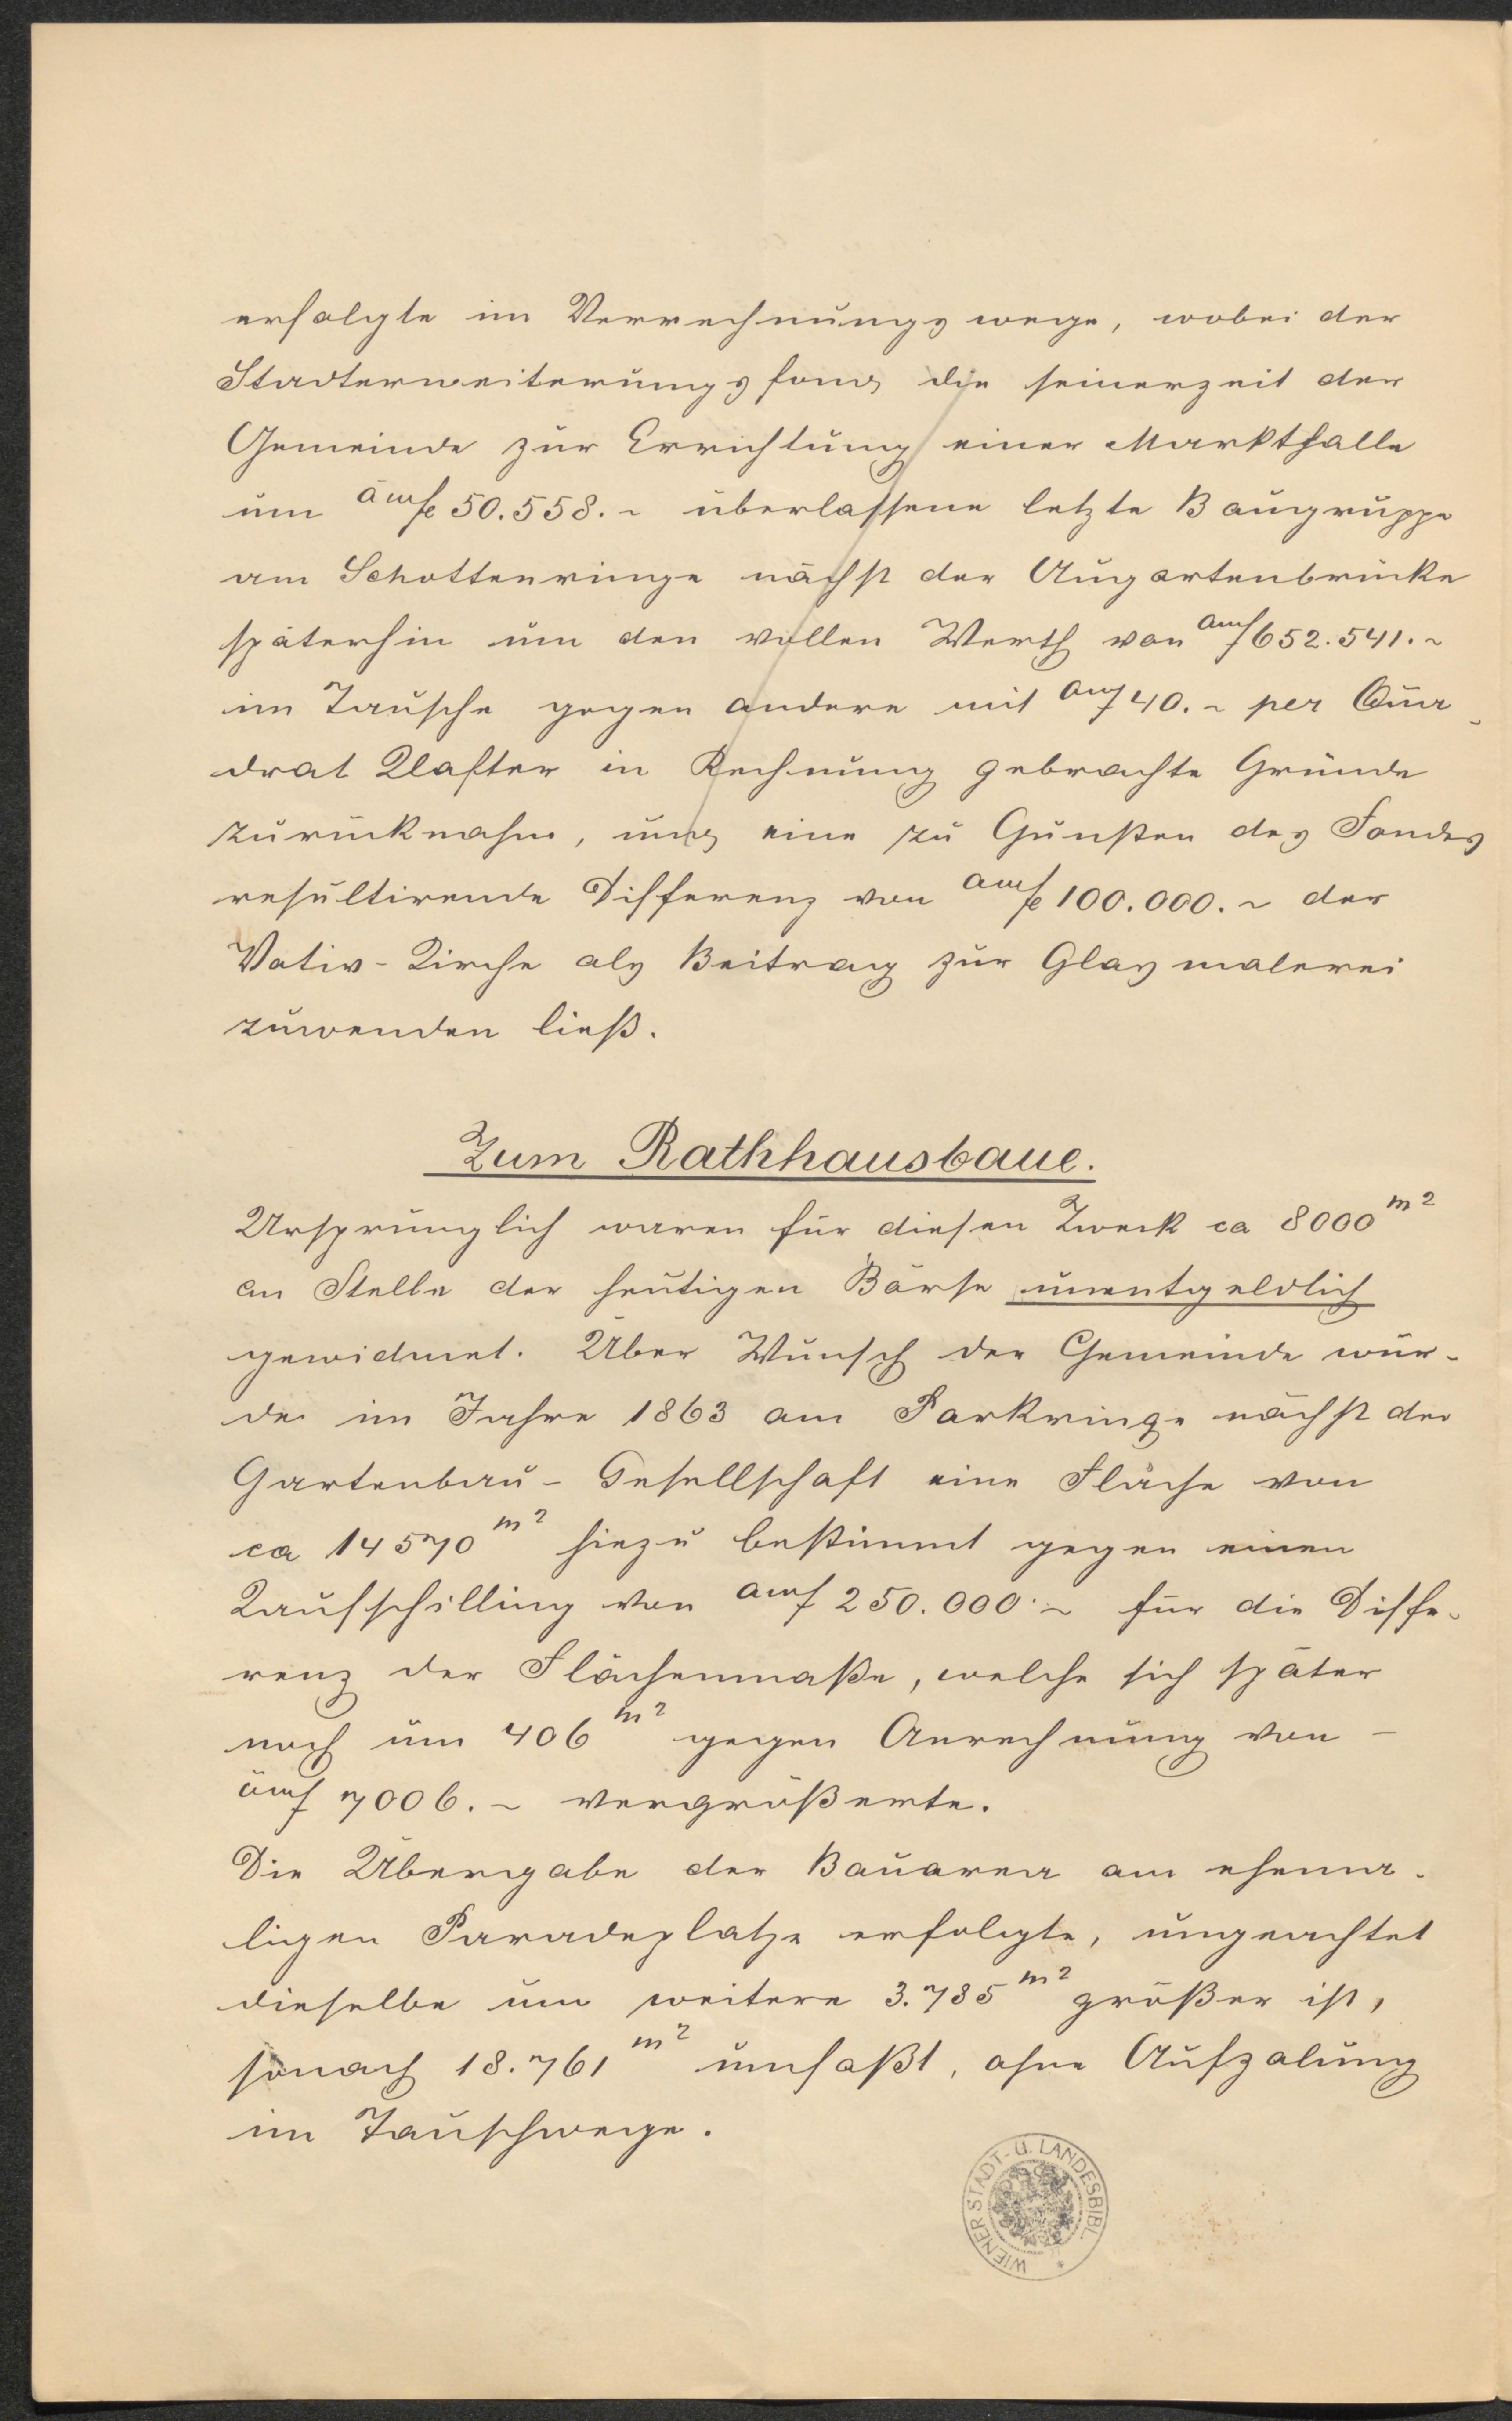 erfolgte im Verrechnungswege, wobei der
Stadterweiterungsfond die seinerzeit der
Gemeinde zur Errichtung einer Markthalle
um öWf 50.558.~ überlassene letzte Baugruppe
am Schottenringe nächst der Augartenbrücke
späterhin um den vollen Werth von öWf 652.541.~
im Tausche gegen andere mit öWf 40.~ per Qua-
drat Klafter in Rechnung gebrachte Gründe
zurücknahm, und eine zu Gunsten des Fondes
resultirende Differenz von öWf 100.000.~ der
Votiv-Kirche als Beitrag zur Glasmalerei
zuwenden ließ.
Zum Rathhausbaue.
Ursprünglich waren für diesen Zweck ca 8000 m²
an Stelle der heutigen Börse unentgeldlich
gewidmet. Über Wunsch der Gemeinde wur-
de im Jahre 1863 am Parkringe nächst der
Gartenbau-Gesellschaft eine Fläche von
ca 14570 m² hiezu bestimmt gegen einen
Kaufschilling von öWf 250.000.~ für die Diffe-
renz der Flächenmaße, welche sich später
noch um 406 m² gegen Anrechnung von –
öWf 7006.~ vergrößerte.
Die Übergabe der Bauarea am ehema-
ligen Paradeplatze erfolgte, ungeachtet
dieselbe um weitere 3.785 m² größer ist,
sonach 18.761 m² umfaßt, ohne Aufzalung
im Tauschwege.
WIENER STADT- U. LANDESBIBL. *